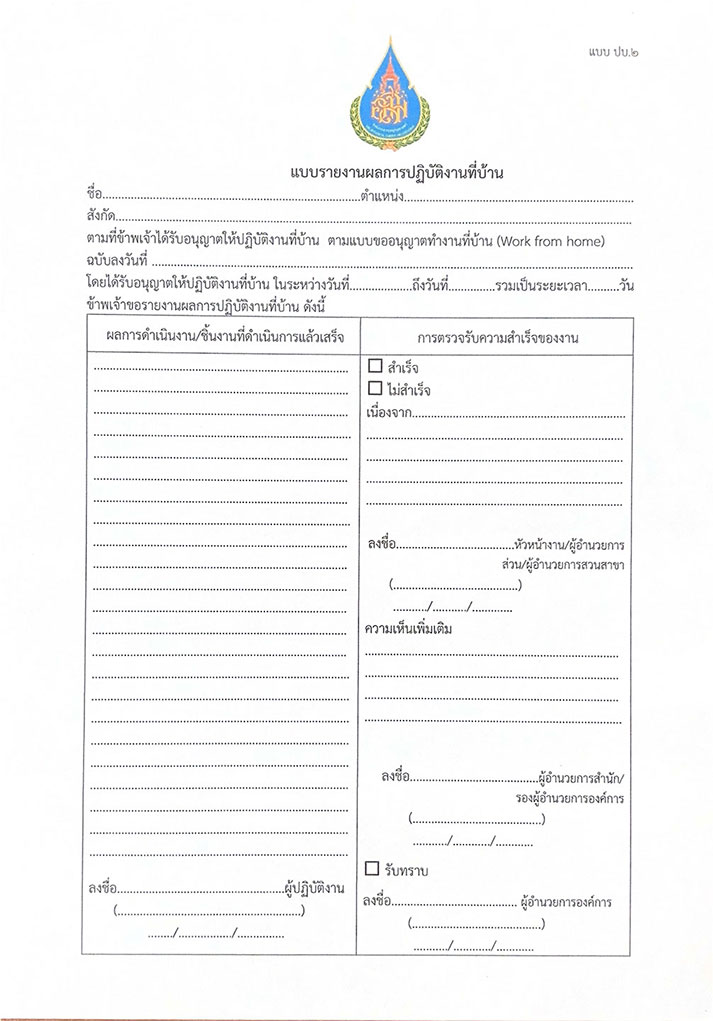 แบบ ปบ.๒
แบบรายงานผลการปฏิบัติงานที่บ้าน
ชื่อ..............................................................ตำแหน่ง.......................................................
สังกัด..............................................................................................................................
ตามที่ข้าพเจ้าได้รับอนุญาตให้ปฏิบัติงานที่บ้าน ตามแบบขออนุญาตทำงานที่บ้าน (Work from home)
ฉบับลงวันที่ ....................................................................................................................
โดยได้รับอนุญาตให้ปฏิบัติงานที่บ้าน ในระหว่างวันที่...................ถึงวันที่..............รวมเป็นระยะเวลา........วัน
ข้าพเจ้าขอรายงานผลการปฏิบัติงานที่บ้าน ดังนี้
ผลการดำเนินงาน/ชิ้นงานที่ดำเนินการแล้วเสร็จ
ลงชื่อ..........................................ผู้ปฏิบัติงาน
(..............................................)
......./............../..............
การตรวจรับความสำเร็จของงาน
☐ สำเร็จ
☐ ไม่สำเร็จ
เนื่องจาก......................................................
ลงชื่อ..............................หัวหน้างาน/ผู้อำนวยการ
ส่วน/ผู้อำนวยการสวนสาขา
(................................)
........../........../............
ความเห็นเพิ่มเติม
ลงชื่อ................................ผู้อำนวยการสำนัก/
รองผู้อำนวยการองค์การ
(.................................)
........../........../............
☐ รับทราบ
ลงชื่อ................................ ผู้อำนวยการองค์การ
(.................................)
........../........../............